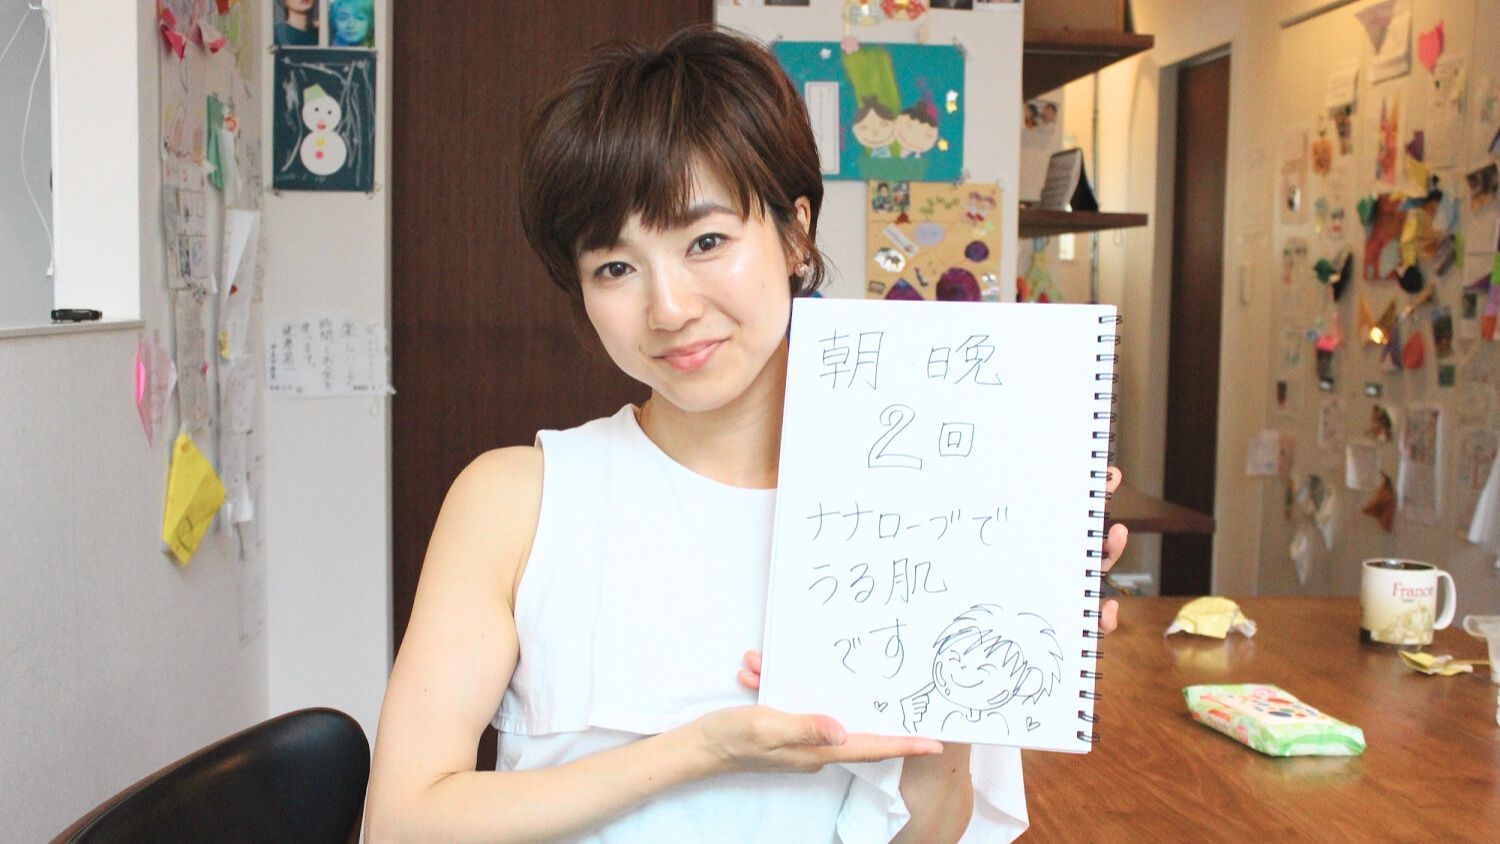 朝 晩
2回
ナナローブで
うる肌
です
France